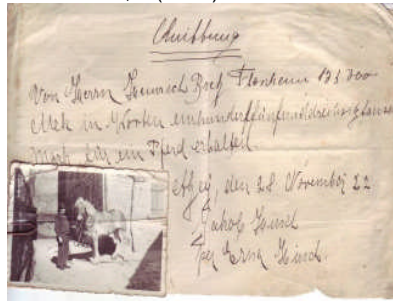 Quittung
Von Herrn Heinrich Flonheim 135000
Mark in Worten einhundertfünfunddreisigtausend
Mark für ein Pferd erhalten.
den 28 November 22
Jakob
Hirsch